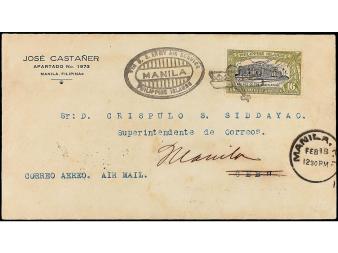 JOSÉ CASTAÑER
APARTADO No. 1973
MANILA, FILIPINAS
VIA U. S. ARMY AIR SERVICE
MANILA
PHILIPPINE ISLANDS
PHILIPPINE ISLANDS
16
Sr: D. CRISPULO S. SIDDAYAO.
Superintendente de Correos.
Manila
CEBU.
CORREO AEREO. AIR MAIL.
MANILA, P.I.
FEB 18
12 30 PM